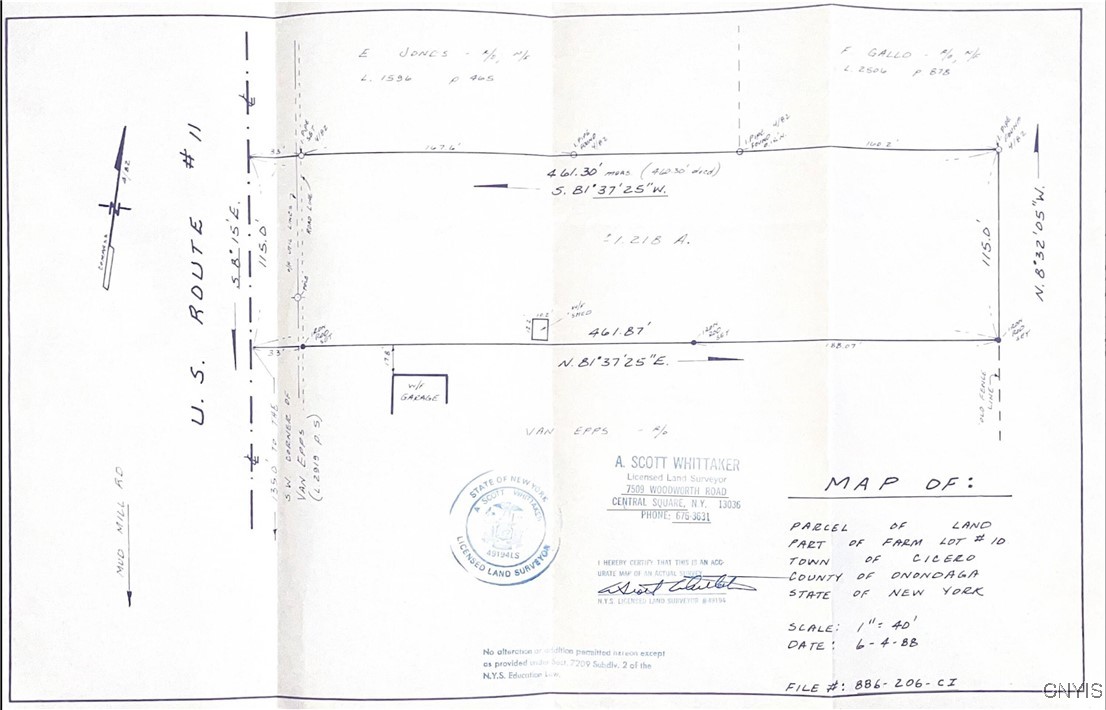 E JONES - R/O, N/F
L. 1596 p 465
F GALLO - R/O, N/F
L. 2506 p 878
U. S. ROUTE #11
S. 8° 15' E.
115.0'
33'
1" PIPE SET 4/82
167.6'
1" PIPE FOUND 4/82
1" PIPE FOUND
160.2'
1" PIPE FOUND 4/82
461.30' meas (460.30' deed)
S. 81° 37' 25" W.
±1.218 A.
115.0'
N. 8° 32' 05" W.
4/82
COMPASS
ROAD LINE
POLE
33'
IRON ROD SET
12.2
10.2
W/F SHED
461.87'
N. 81° 37' 25" E.
IRON ROD SET
188.07'
IRON ROD SET
17.8'
W/F GARAGE
OLD FENCE LINE
TO THE
SW CORNER OF
VAN EPPS
(L 2919 P. 5)
VAN EPPS - R/O
MUD MILL RD
STATE OF NEW YORK
A. SCOTT WHITTAKER
49194LS
LICENSED LAND SURVEYOR
A. SCOTT WHITTAKER
Licensed Land Surveyor
7509 WOODWORTH ROAD
CENTRAL SQUARE, N.Y. 13036
PHONE: 676-3631
I HEREBY CERTIFY THAT THIS IS AN ACC-
URATE MAP OF AN ACTUAL SURVEY
N.Y.S. LICENSED LAND SURVEYOR #49194
No alteration or addition permitted hereon except
as provided under Sect. 7209 Subdiv. 2 of the
N.Y.S. Education Law.
MAP OF:
PARCEL OF LAND
PART OF FARM LOT #10
TOWN OF CICERO
COUNTY OF ONONDAGA
STATE OF NEW YORK
SCALE: 1" = 40'
DATE: 6-4-88
FILE #: 886-206-CI
CNYIS